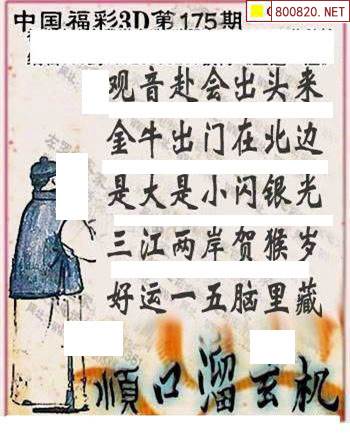 800820.NET
中国福彩3D第175期
观音赴会出头来
金牛出门在北边
是大是小闪银光
三江两岸贺猴岁
好运一五脑里藏
顺口溜玄机